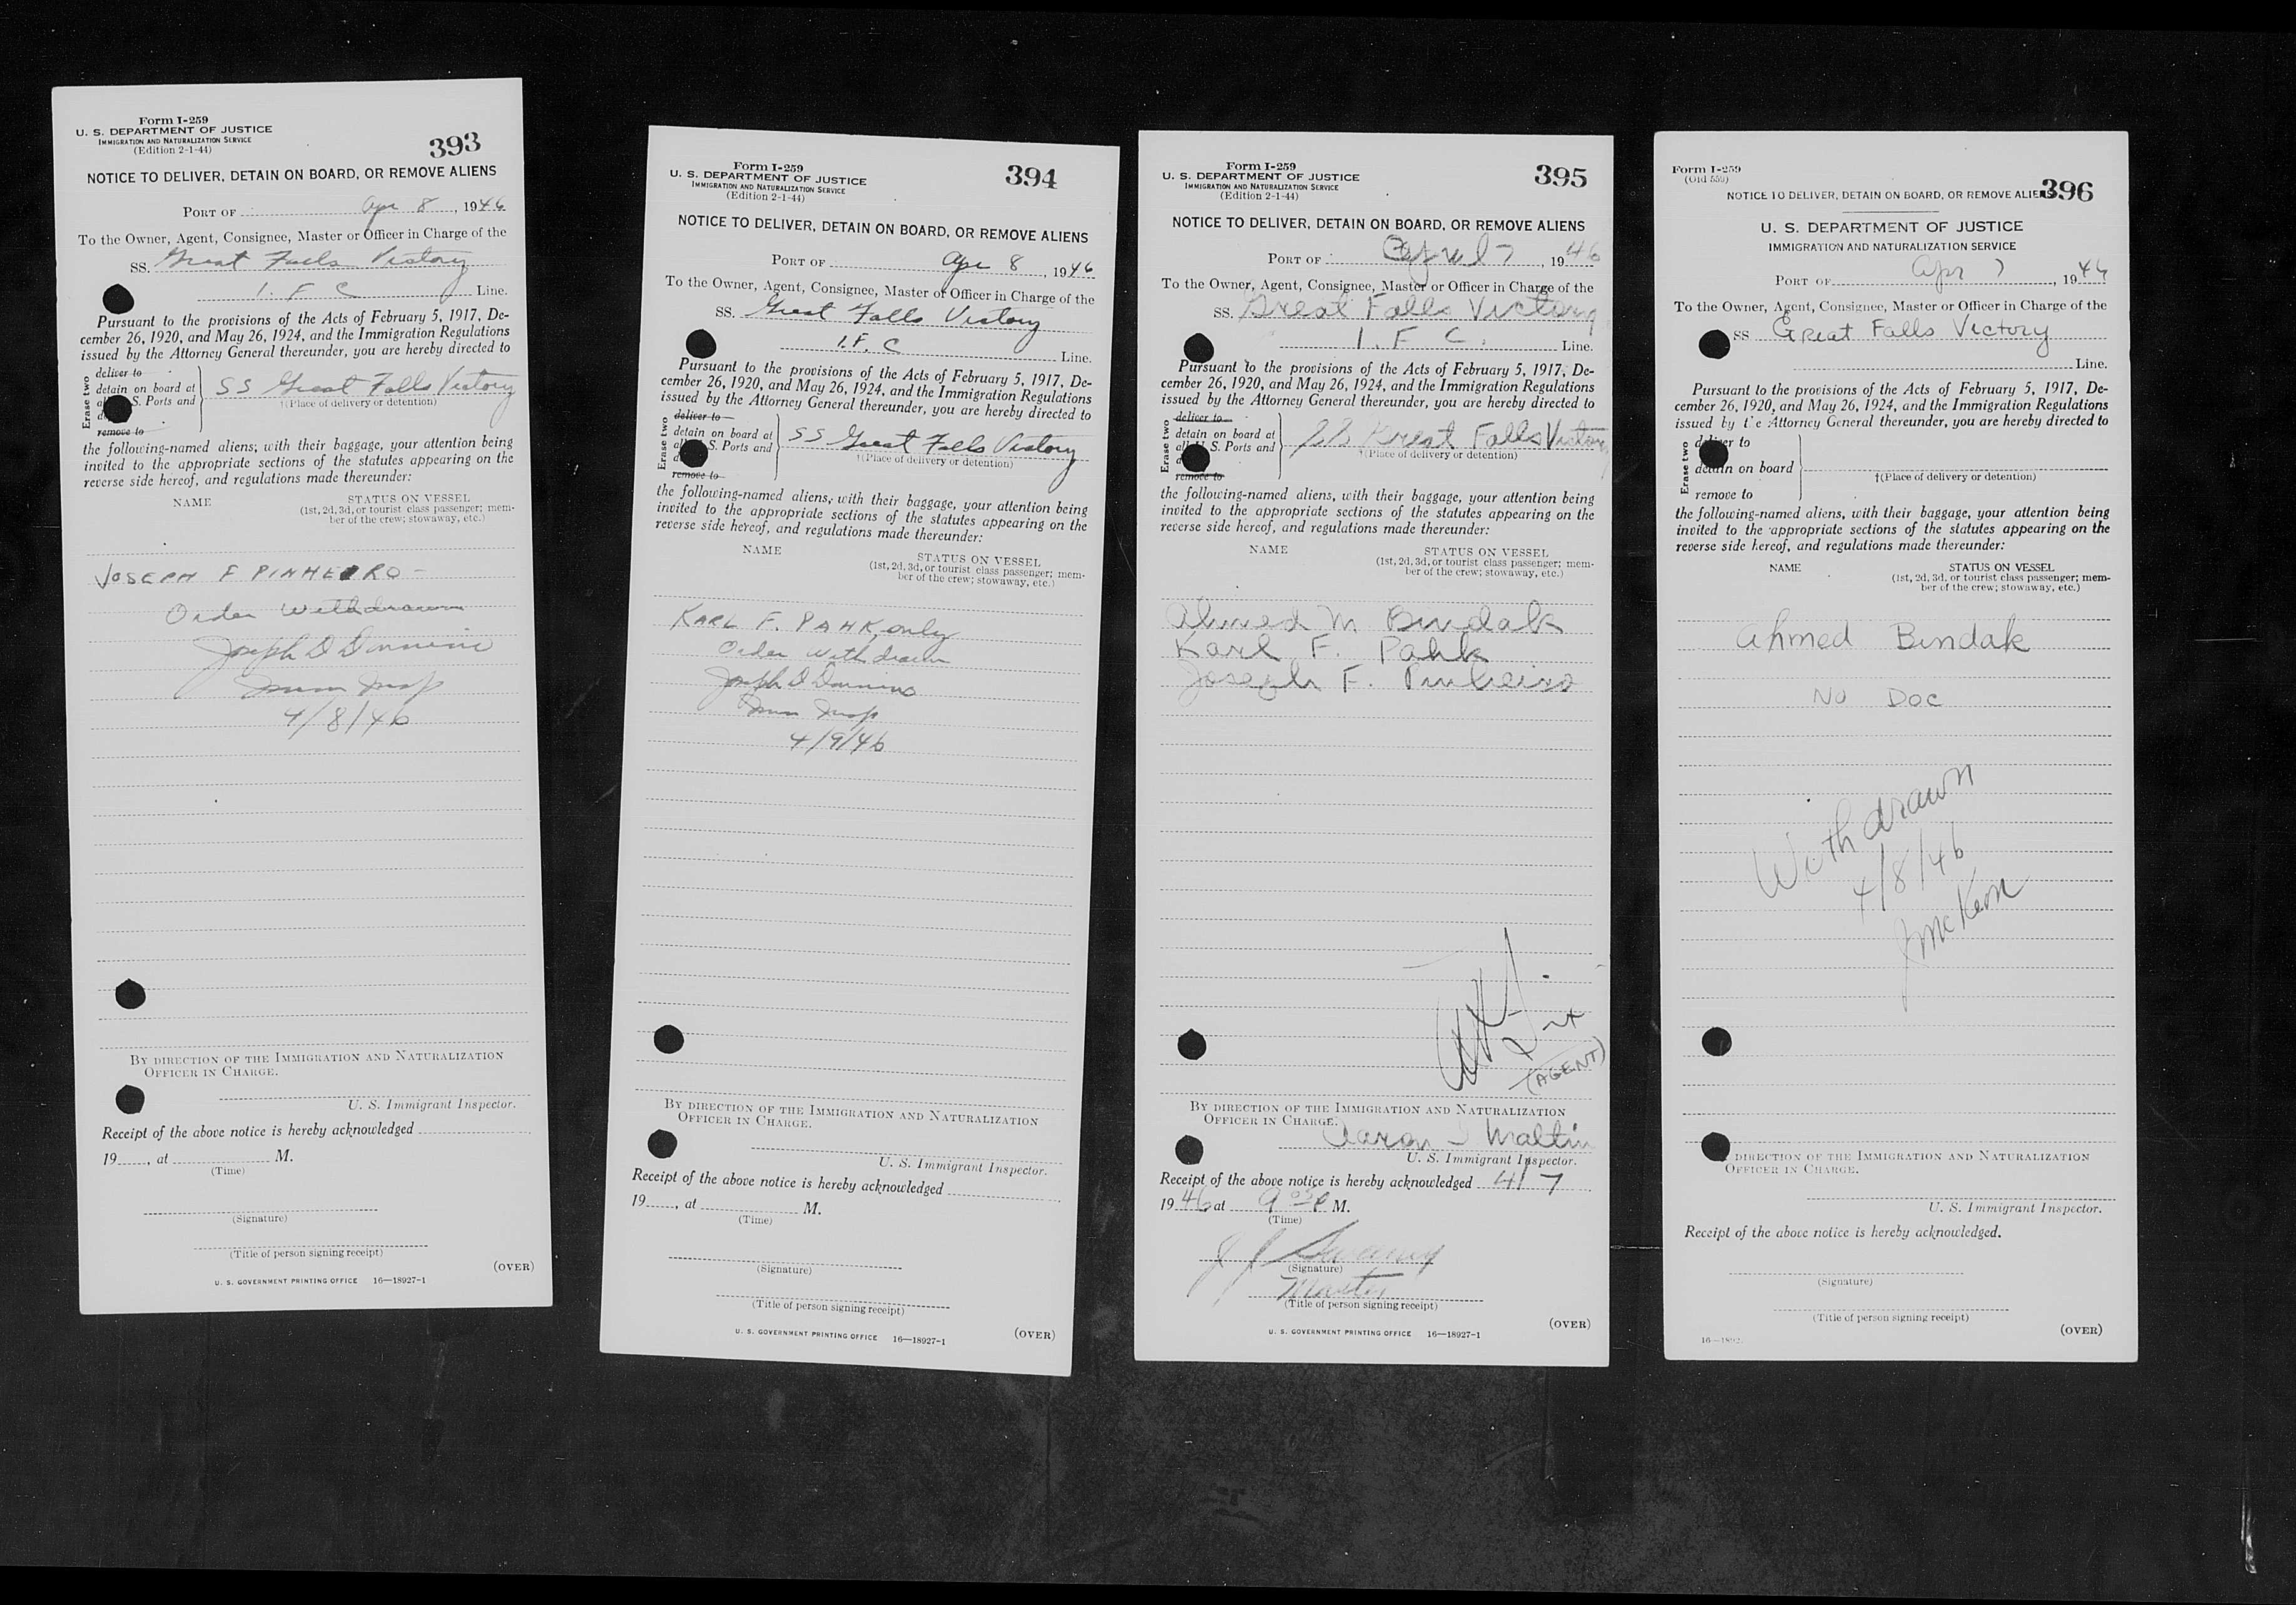 Form I-259
U. S. DEPARTMENT OF JUSTICE
IMMIGRATION AND NATURALIZATION SERVICE
(Edition 2-1-44)
393
NOTICE TO DELIVER, DETAIN ON BOARD, OR REMOVE ALIENS
PORT OF Apr 8, 1946
To the Owner, Agent, Consignee, Master or Officer in Charge of the
SS. Great Falls Victory
I. F C Line.
Pursuant to the provisions of the Acts of February 5, 1917, De-
cember 26, 1920, and May 26, 1924, and the Immigration Regulations
issued by the Attorney General thereunder, you are hereby directed to
Erase two
deliver to
detain on board at
S. Ports and
remove to
SS Great Falls Victory
†(Place of delivery or detention)
the following-named aliens, with their baggage, your attention being
invited to the appropriate sections of the statutes appearing on the
reverse side hereof, and regulations made thereunder:
NAME
STATUS ON VESSEL
(1st, 2d, 3d, or tourist class passenger; mem-
ber of the crew; stowaway, etc.)
JOSEPH F PINHEIRO -
Order Withdrawn
Joseph D
4/8/46
BY DIRECTION OF THE IMMIGRATION AND NATURALIZATION
OFFICER IN CHARGE.
U. S. Immigrant Inspector.
Receipt of the above notice is hereby acknowledged
19, at M.
(Time)
(Signature)
(Title of person signing receipt)
(OVER)
U. S. GOVERNMENT PRINTING OFFICE 16—18927-1
Form I-259
U. S. DEPARTMENT OF JUSTICE
IMMIGRATION AND NATURALIZATION SERVICE
(Edition 2-1-44)
394
NOTICE TO DELIVER, DETAIN ON BOARD, OR REMOVE ALIENS
PORT OF Apr 8, 1946
To the Owner, Agent, Consignee, Master or Officer in Charge of the
SS. Great Falls Victory
I. F. C Line.
Pursuant to the provisions of the Acts of February 5, 1917, De-
cember 26, 1920, and May 26, 1924, and the Immigration Regulations
issued by the Attorney General thereunder, you are hereby directed to
Erase two
deliver to
detain on board at
S. Ports and
remove to
SS Great Falls Victory
†(Place of delivery or detention)
the following-named aliens, with their baggage, your attention being
invited to the appropriate sections of the statutes appearing on the
reverse side hereof, and regulations made thereunder:
NAME
STATUS ON VESSEL
(1st, 2d, 3d, or tourist class passenger; mem-
ber of the crew; stowaway, etc.)
KARL F. PAHK, only
Order withdrawn
Joseph D
4/9/46
BY DIRECTION OF THE IMMIGRATION AND NATURALIZATION
OFFICER IN CHARGE.
U. S. Immigrant Inspector.
Receipt of the above notice is hereby acknowledged
19, at M.
(Time)
(Signature)
(Title of person signing receipt)
(OVER)
U. S. GOVERNMENT PRINTING OFFICE 16—18927-1
Form I-259
U. S. DEPARTMENT OF JUSTICE
IMMIGRATION AND NATURALIZATION SERVICE
(Edition 2-1-44)
395
NOTICE TO DELIVER, DETAIN ON BOARD, OR REMOVE ALIENS
PORT OF April 7, 1946
To the Owner, Agent, Consignee, Master or Officer in Charge of the
SS. Great Falls Victory
I. F C. Line.
Pursuant to the provisions of the Acts of February 5, 1917, De-
cember 26, 1920, and May 26, 1924, and the Immigration Regulations
issued by the Attorney General thereunder, you are hereby directed to
Erase two
deliver to
detain on board at
S. Ports and
remove to
SS Great Falls Victory
†(Place of delivery or detention)
the following-named aliens, with their baggage, your attention being
invited to the appropriate sections of the statutes appearing on the
reverse side hereof, and regulations made thereunder:
NAME
STATUS ON VESSEL
(1st, 2d, 3d, or tourist class passenger; mem-
ber of the crew; stowaway, etc.)
Ahmed M. Bindak
Karl F. Pahk
Joseph F. Pinheiro
(AGENT)
BY DIRECTION OF THE IMMIGRATION AND NATURALIZATION
OFFICER IN CHARGE.
Aaron I Maltin
U. S. Immigrant Inspector.
Receipt of the above notice is hereby acknowledged 4/7
1946 at 9 05 P M.
(Time)
J J Sweeney
(Signature)
Master
(Title of person signing receipt)
(OVER)
U. S. GOVERNMENT PRINTING OFFICE 16—18927-1
Form I-259
(Old 559)
396
NOTICE TO DELIVER, DETAIN ON BOARD, OR REMOVE ALIENS
U. S. DEPARTMENT OF JUSTICE
IMMIGRATION AND NATURALIZATION SERVICE
PORT OF Apr 7, 1946
To the Owner, Agent, Consignee, Master or Officer in Charge of the
SS Great Falls Victory
Line.
Pursuant to the provisions of the Acts of February 5, 1917, De-
cember 26, 1920, and May 26, 1924, and the Immigration Regulations
issued by the Attorney General thereunder, you are hereby directed to
Erase two
deliver to
detain on board
remove to
†(Place of delivery or detention)
the following-named aliens, with their baggage, your attention being
invited to the appropriate sections of the statutes appearing on the
reverse side hereof, and regulations made thereunder:
NAME
STATUS ON VESSEL
(1st, 2d, 3d, or tourist class passenger; mem-
ber of the crew; stowaway, etc.)
Ahmed Bindak
No Doc
Withdrawn
4/8/46
J McKeon
DIRECTION OF THE IMMIGRATION AND NATURALIZATION
OFFICER IN CHARGE.
U. S. Immigrant Inspector.
Receipt of the above notice is hereby acknowledged.
(Signature)
(Title of person signing receipt)
(OVER)